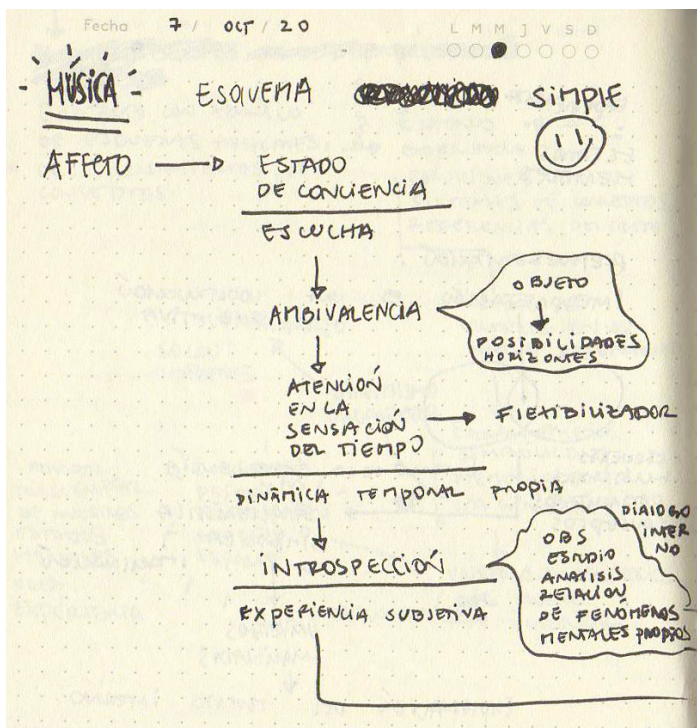 Fecha 7 / OCT / 20
L M M J V S D
MÚSICA ESQUEMA SIMPLE
AFFETO → ESTADO
DE CONCIENCIA
ESCUCHA
AMBIVALENCIA
OBJETO
POSIBILIDADES
HORIZONTES
ATENCIÓN
EN LA
SENSACIÓN
DEL TIEMPO
→ FLEXIBILIZADOR
DINÁMICA TEMPORAL PROPIA
INTROSPECCIÓN
DIALOGO
INTER
NO
OBS
ESTUDIO
ANALISIS
RELACION
DE FENÓMENOS
MENTALES PROPIOS
EXPERIENCIA SUBJETIVA